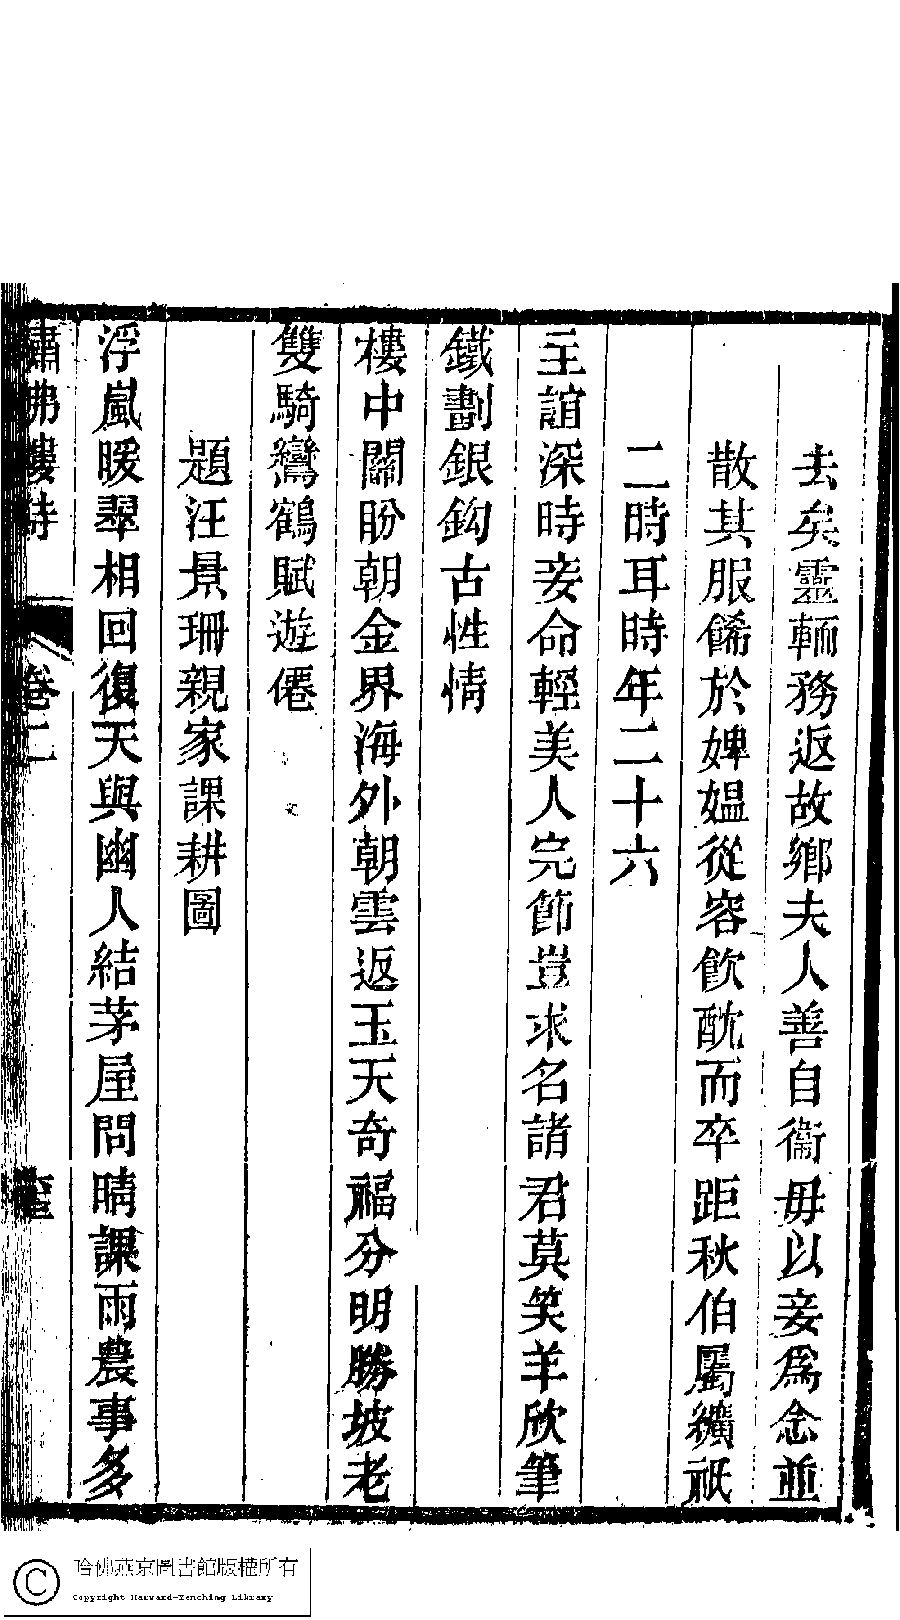 去矣靈輀務返故鄉夫人善自衞毋以妾爲念並
散其服餙於婢媼從容飮酖而卒距秋伯屬纊祇
二時耳時年二十六
主誼深時妾命輕美人完節豈求名諸君莫笑羊欣筆
鐵劃銀鈎古性情
樓中關盼朝金界海外朝雲返玉天奇福分明勝坡老
雙騎鸞鶴賦遊僊
題汪景珊親家課耕圖
浮嵐暖翠相回復天與幽人結茅屋問晴課雨農事多
繡佛樓詩 卷二
哈佛燕京圖書館版權所有
Copyright Harvard-Yenching Library